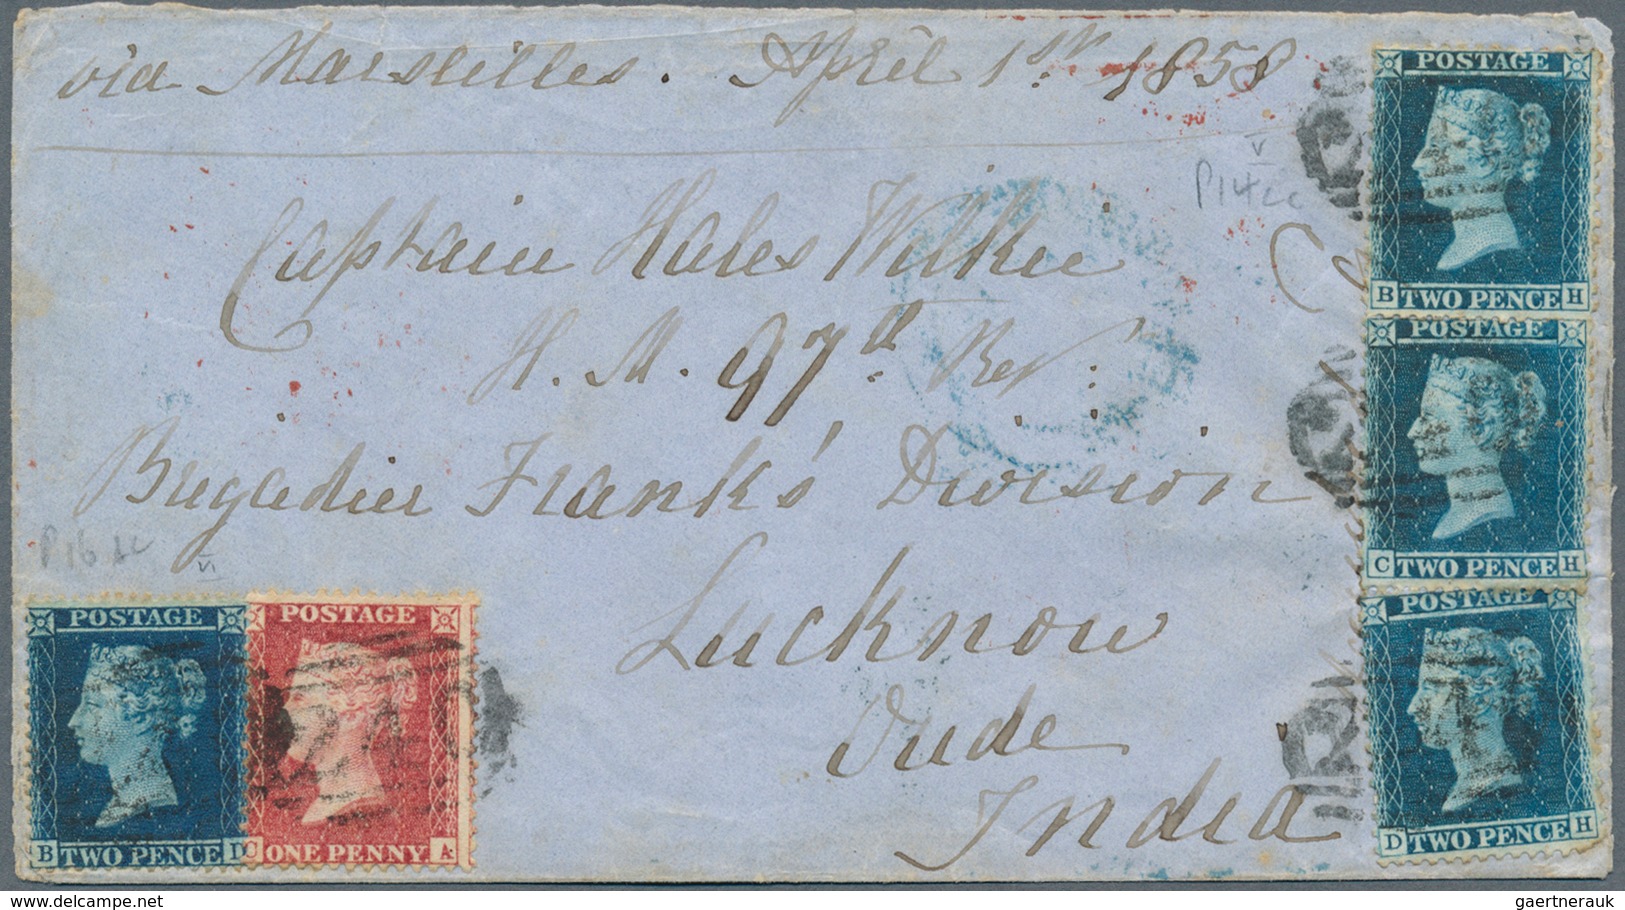 via Marseilles. April 1st. 1858
P14cc
V
Captain Hales Wilkie
H. M. 97th Reg:
Brigadier Frank's Division
Lucknow
Oude
India
P16 LC
VI
POSTAGE
B TWO PENCE H
POSTAGE
C TWO PENCE H
POSTAGE
D TWO PENCE H
POSTAGE
B TWO PENCE
POSTAGE
C ONE PENNY A
24
gaertnerauk